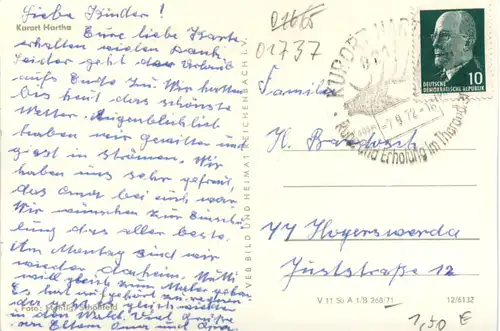 Liebe Kinder!
Kurort Hartha
Eure liebe Karte
erhalten vielen Dank.
Leider geht der Urlaub
aufs Ende zu. Wir hatten
bis heut das schönste
Wetter. Augenblicklich
haben wir Gewitter und
giest in strömen. Wir
haben uns sehr gefreut,
das Oma bei euch war.
Wir wünschen zur Einschu
lung das aller beste.
Am Montag sind wir
wieder daheim. Mutti
will gleich zum Maler gehen.
Es hat aufgehört zu regnen
da geht es gleich wieder
in den Wald. Viel Grüße
Eltern Oma und
Foto: Schönfeld
VEB BILD UND HEIMAT REICHENBACH I. V.
01737
KURORT HARTHA
-7.9.72
Ruhe und Erholung im Tharandter
DEUTSCHE
DEMOKRATISCHE REPUBLIK
10
Familie
H.
77 Hoyerswerda
Juststraße 12
V 11 50 A 1/B 268/71
12/6132
1,50 €